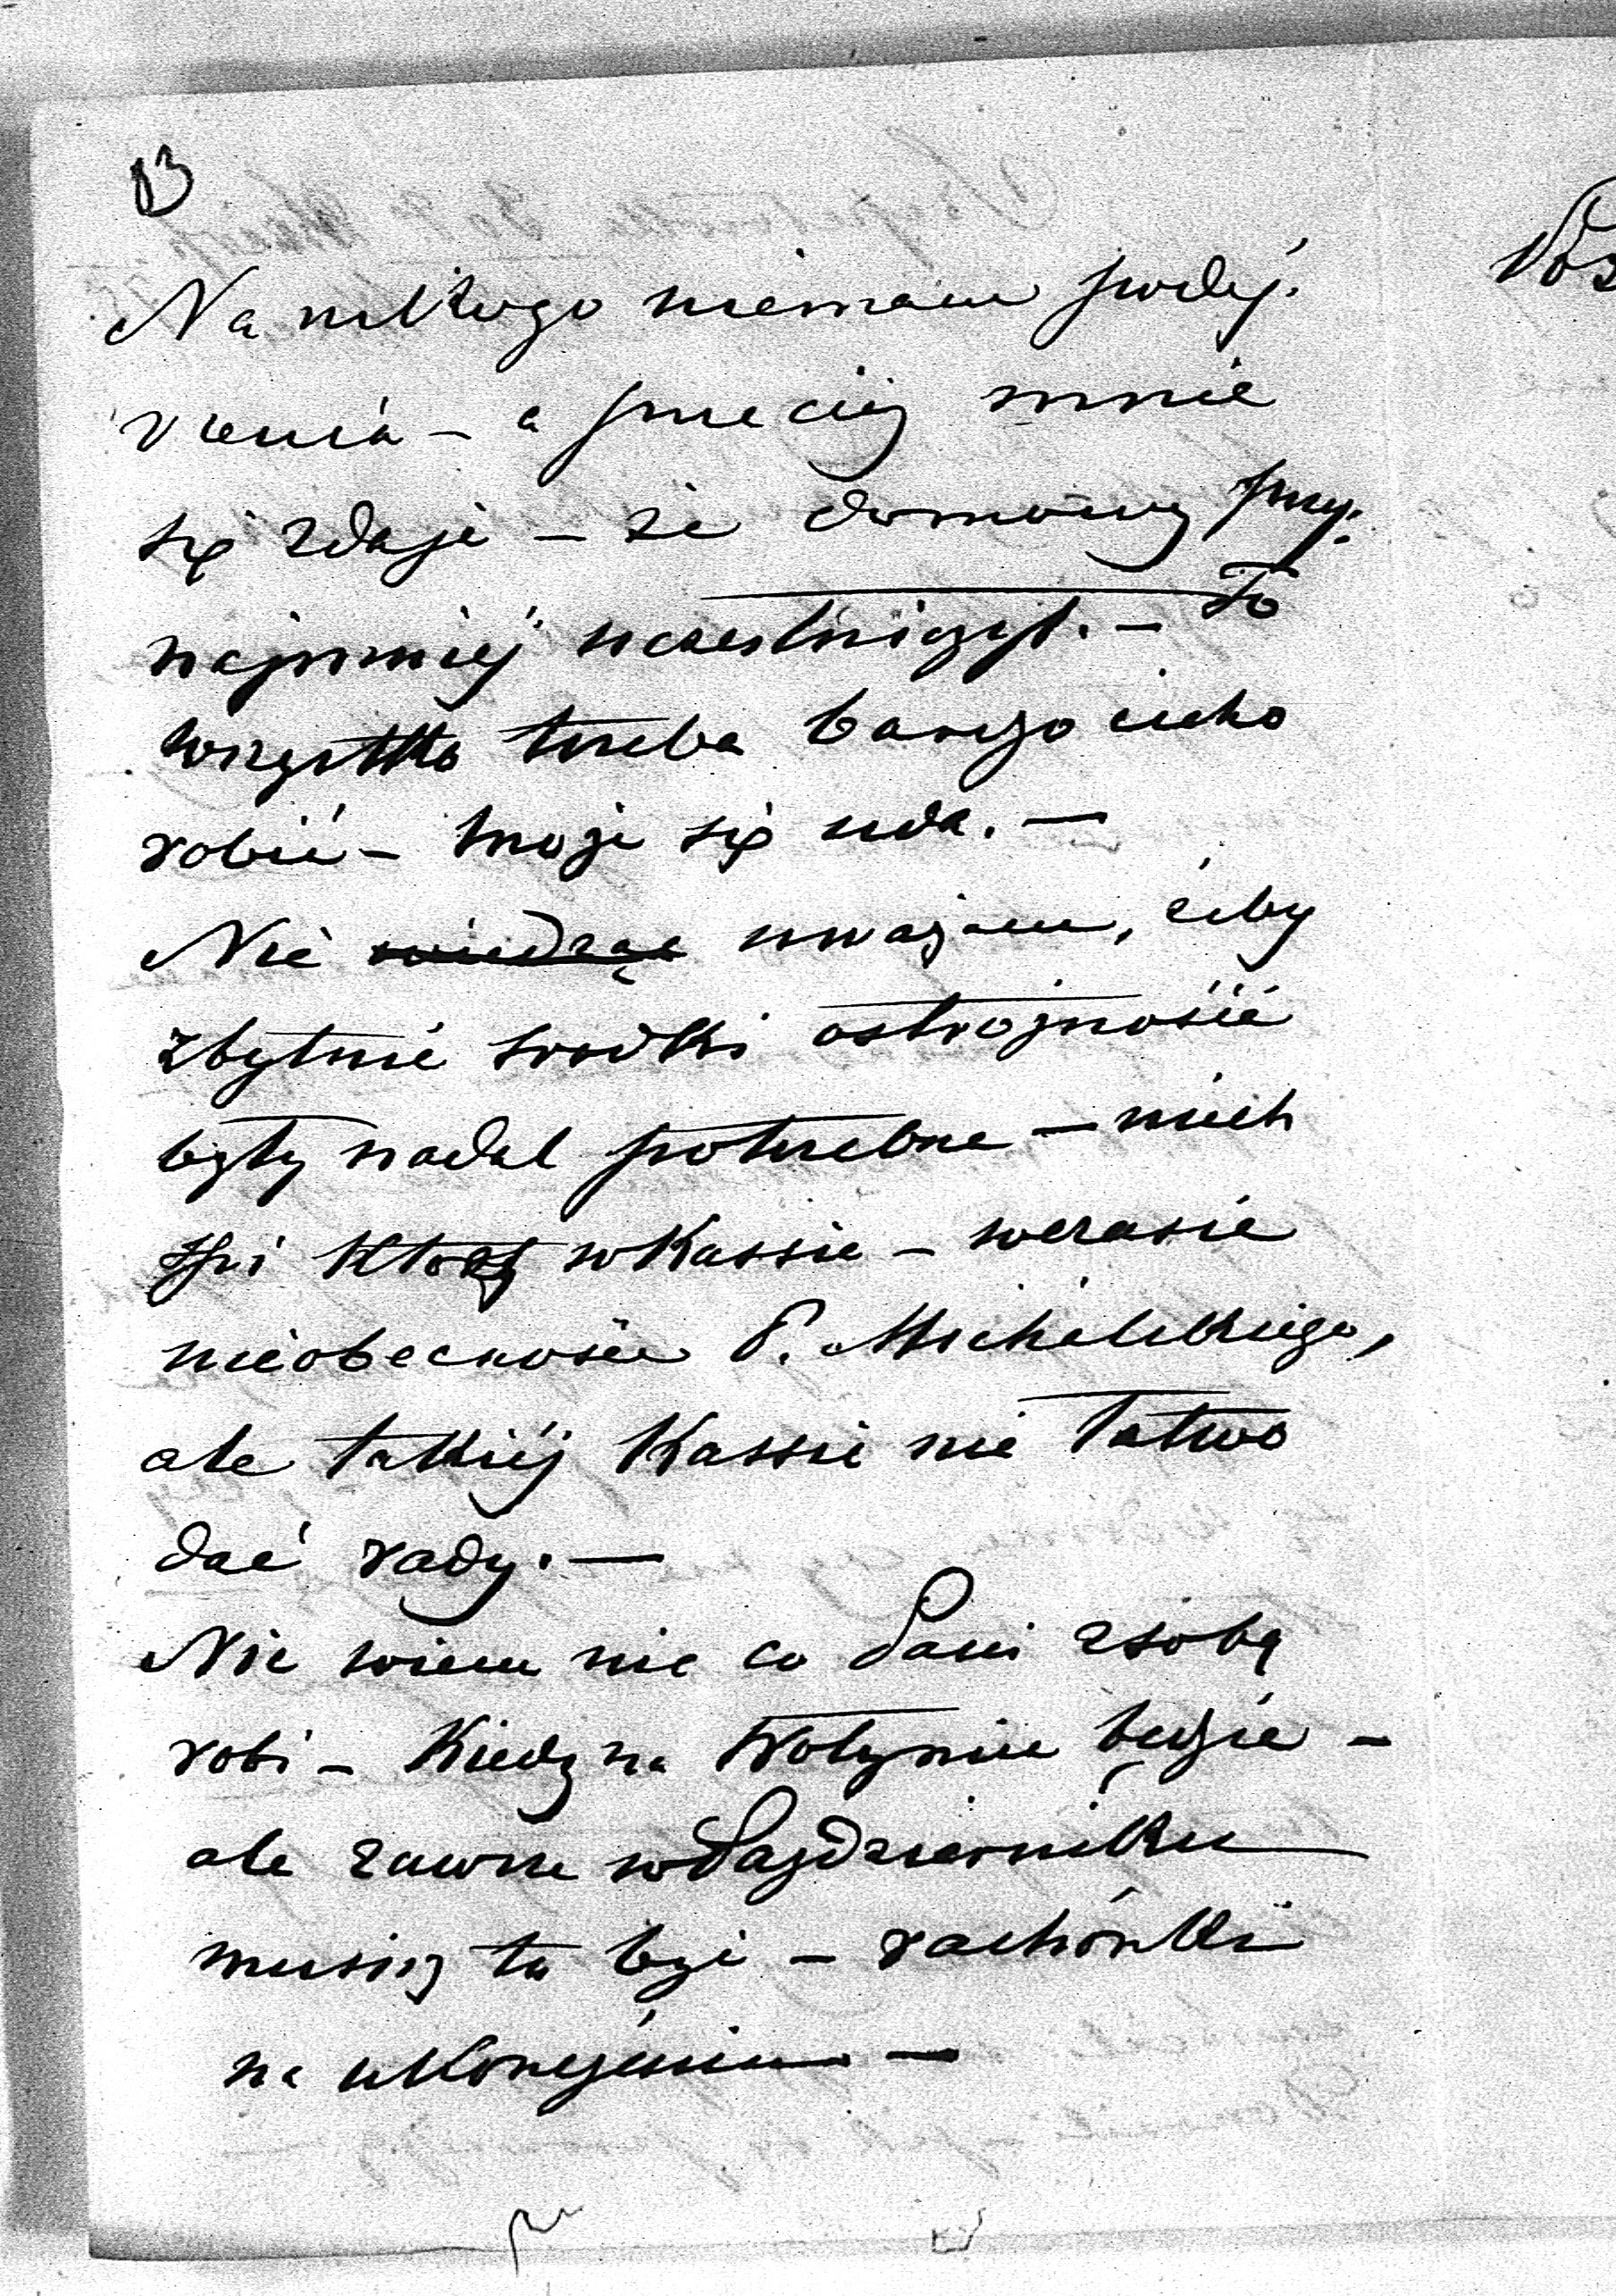 13
Na nikogo niemam podéj-
rzenia – a przeciéż mnie
się zdaje – że domowy przy-
najmniéj uczestniczył. – To
wszystko trzeba bardzo cicho
robić – może się uda. –
Nie wiedząc uważam, żeby
zbytnie srodki ostrożności
były nadal potrzebne – niech
śpi ktoś w Kassie – w czasie
nieobecności P. Michalskiego,
ale takiéj Kassie nie łatwo
dać rady. –
Nie wiem nic co Pani z sobą
robi – Kiedy na Wołyniu będzie –
ale zawsze w Październiku
muszę tu być – rachónki
na ukończeniu –